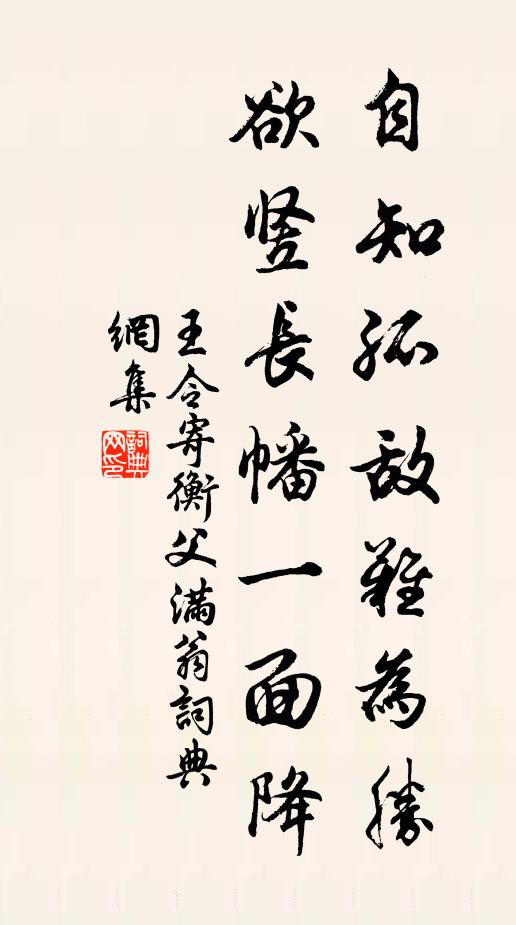 自知孤敵難為勝
欲竖長幡一面降
王令寄衡父滿翁詞典
網集
詞典
网印